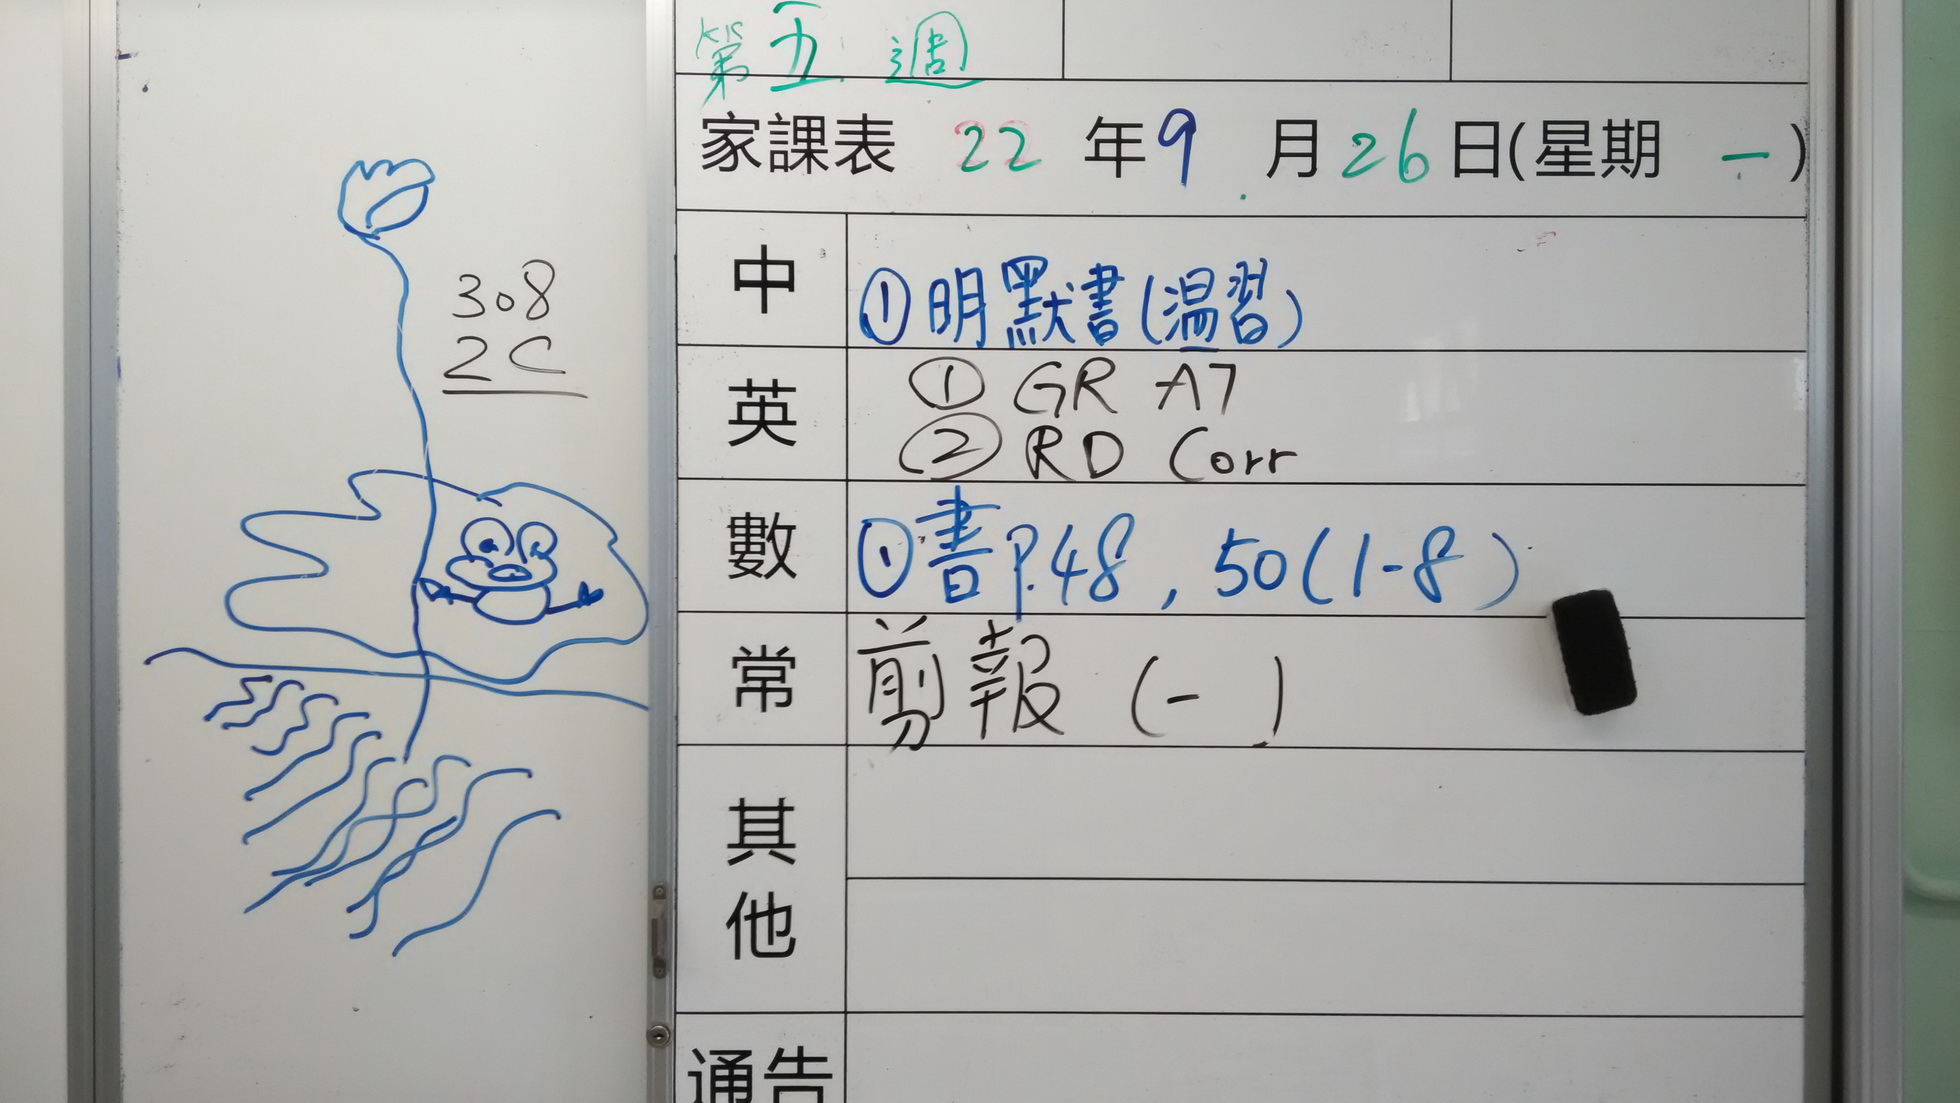 308
2C
第五週
家課表 22 年 9 月 26 日(星期 一)
中 ①明默書(温習)
英 ① GR A7
② RD Corr
數 ①書P.48, 50(1-8)
常 剪報 (一)
其他
通告